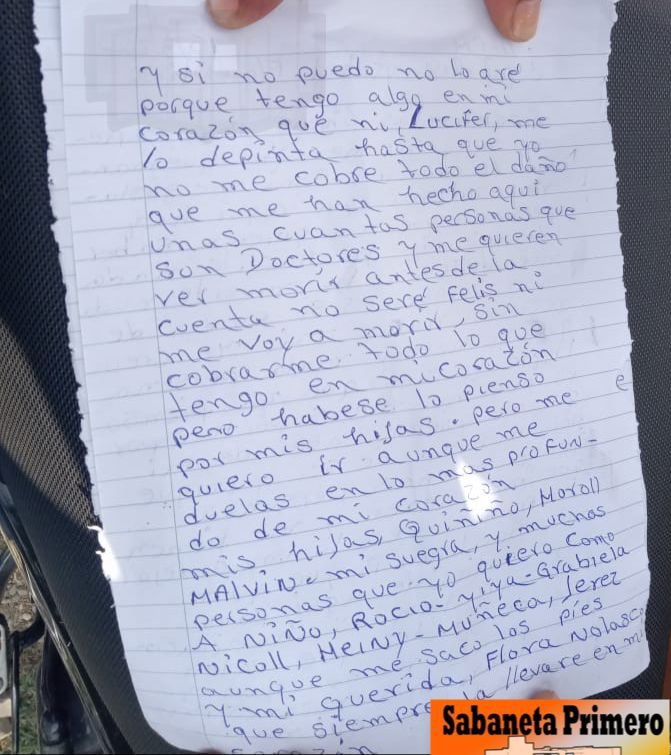 y si no puedo no lo aré
porque tengo algo en mi
corazón que ni, Lucifer, me
lo depinta hasta que yo
no me cobre todo el daño
que me han hecho aqui
unas cuantas personas que
son Doctores y me quieren
ver morir antes de la
cuenta no seré felis ni
me voy a morir, sin
cobrarme todo lo que
tengo en mi corazón
pero habese lo pienso
por mis hijas. pero me e
quiero ir aunque me
duelas en lo mas profun-
do de mi corazón
mis, hijas, Quinino, Moroll
MALVIN. mi suegra, y muchas
personas que yo quiero como
A NIÑO, ROCIO- Yiya-Grabiela
Nicoll, HEINY-Muñeca, Jerez
aunque me saco los pies
y mi querida, Flora Nolasc
que siempre la llevare en mi
Sabaneta Primero